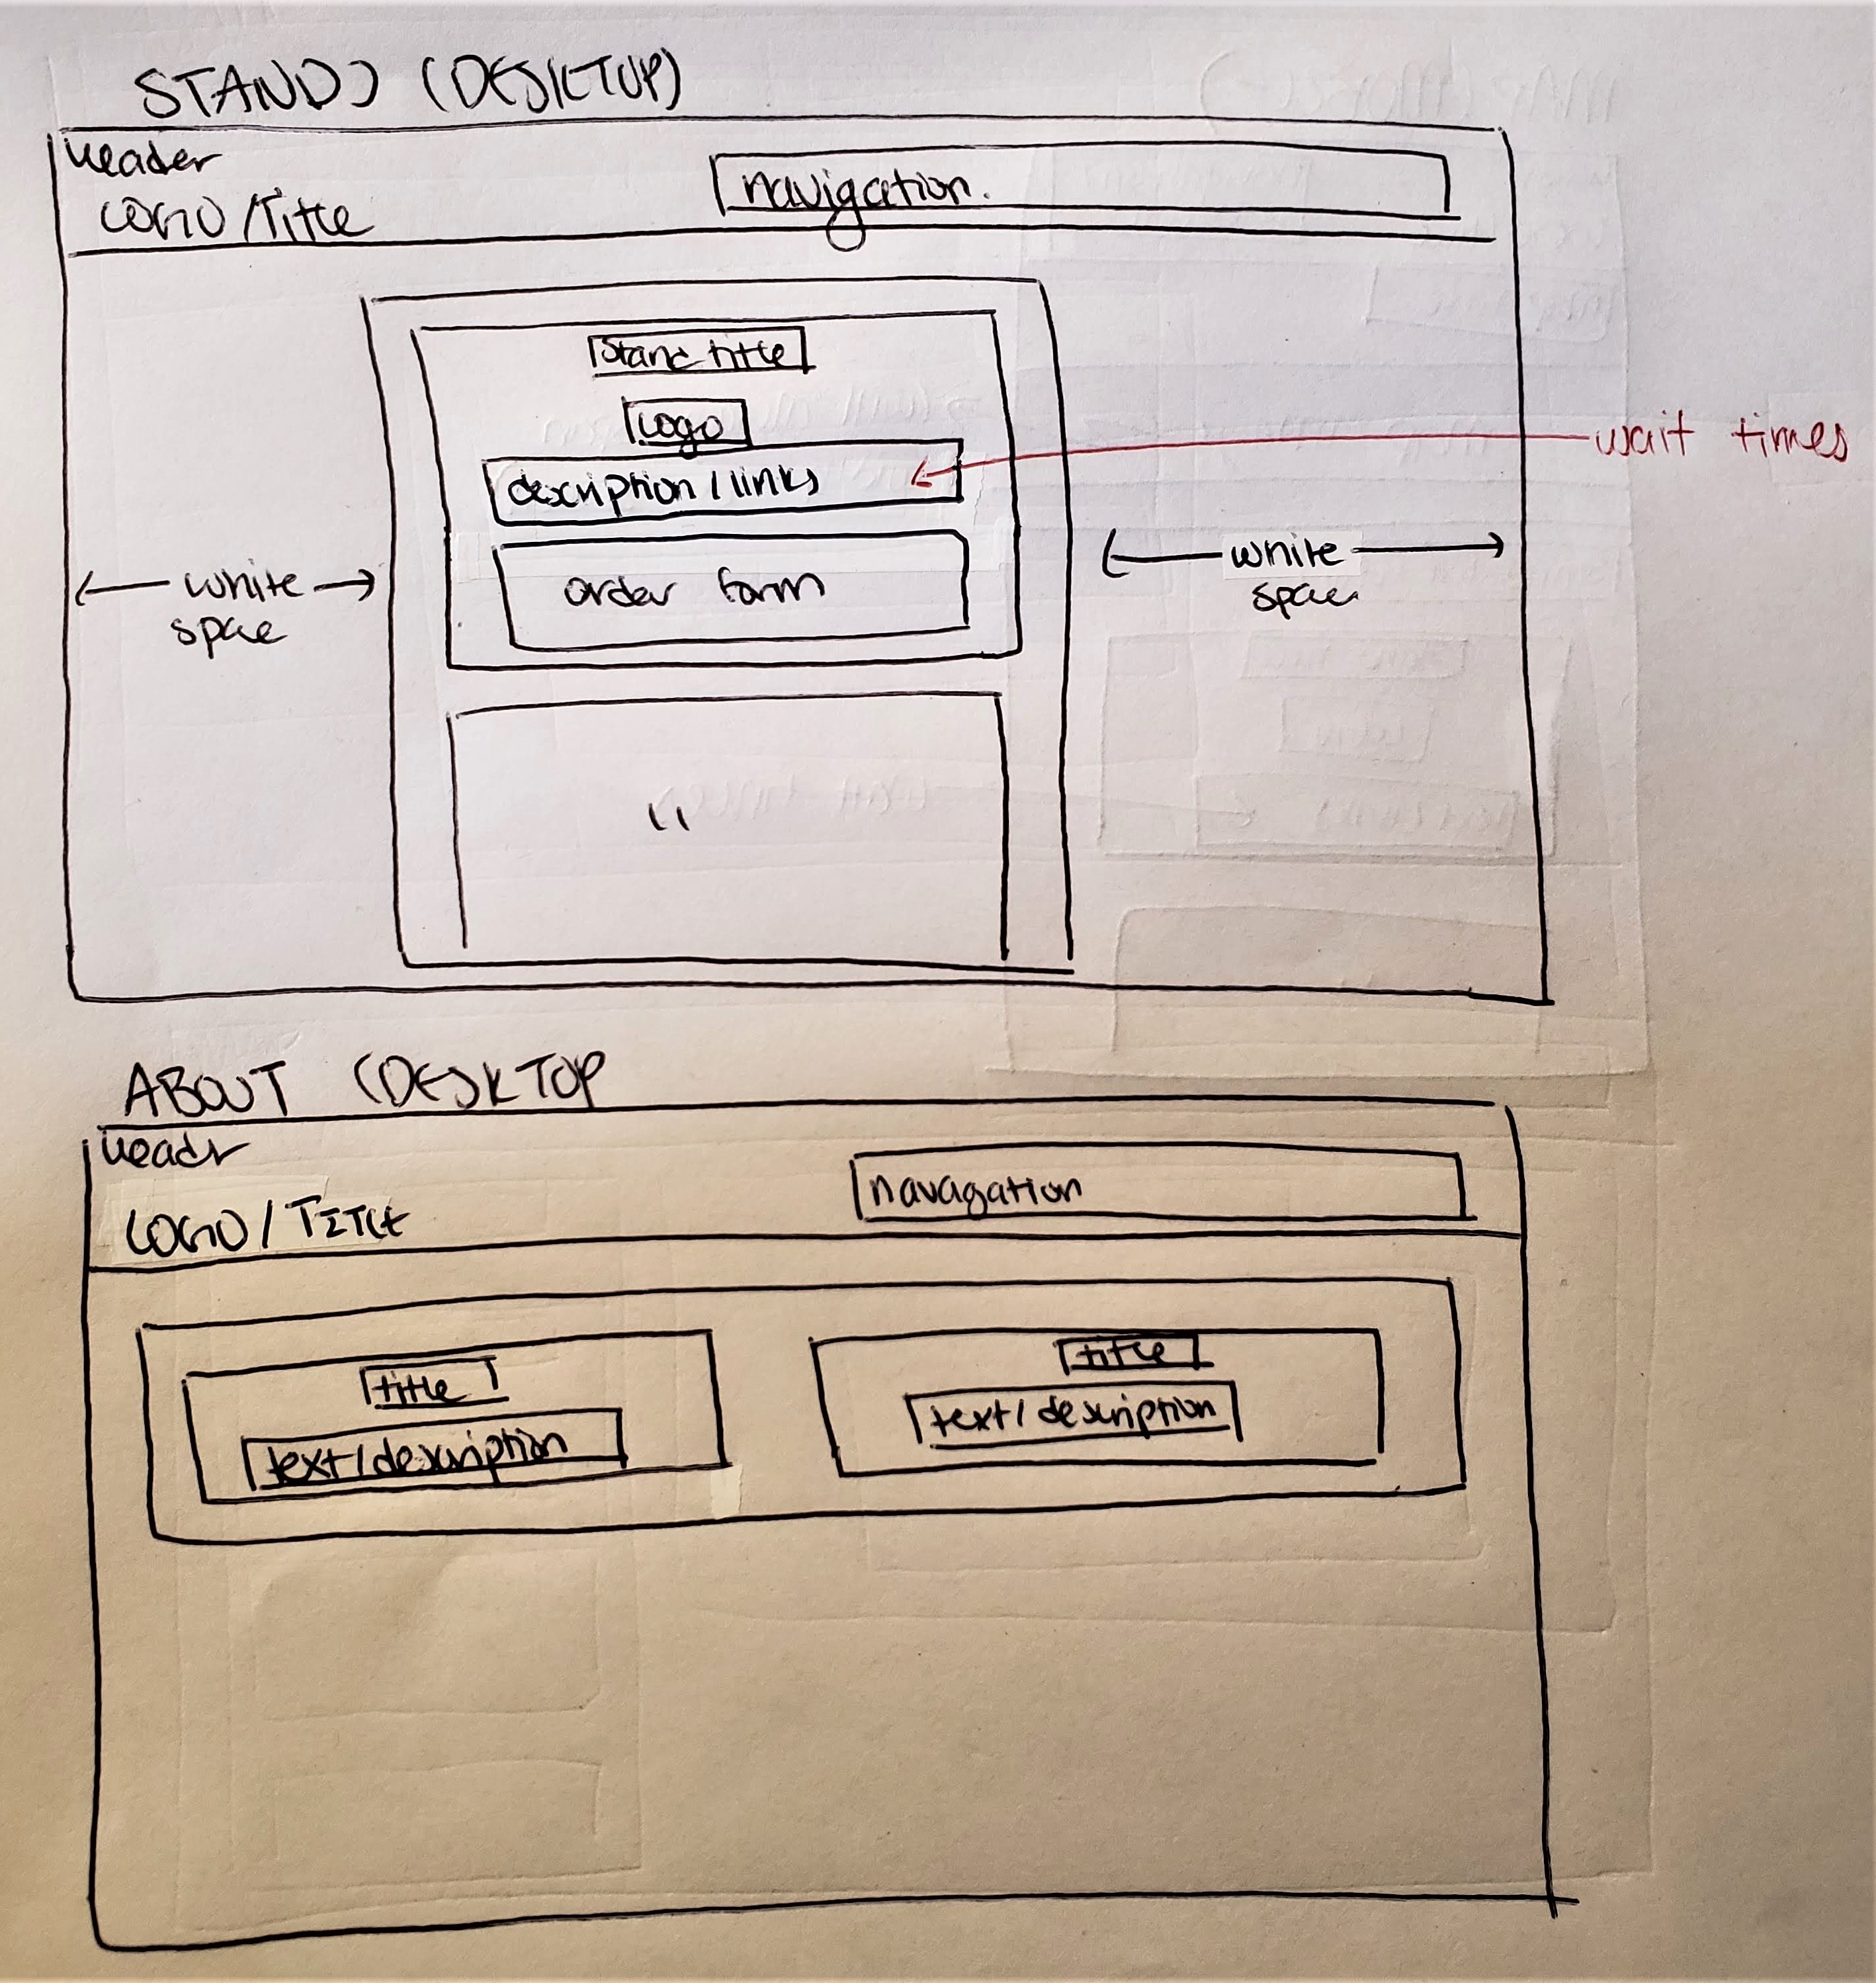 STANDS (DESKTOP)
Header
LOGO/Title
navigation.
Stand title
Logo
description/links
wait times
order form
white
space
white
space
"
ABOUT (DESKTOP
Header
LOGO/TITLE
navagation
title
text/description
title
text/description